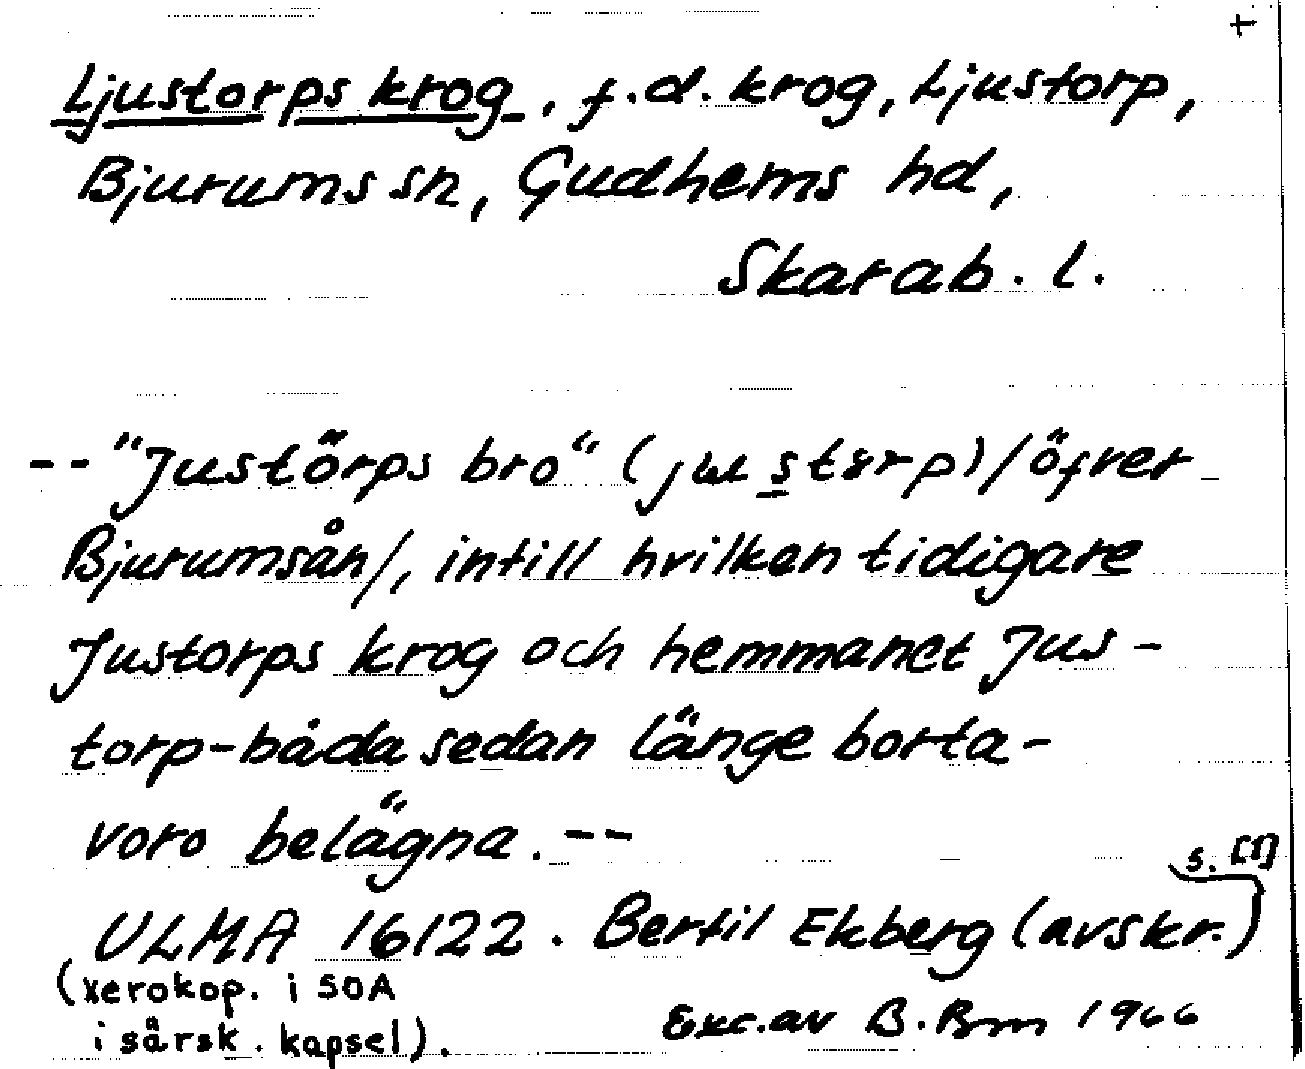 +
Ljustorps krog, f.d. krog, Ljustorp,
Bjurums sn, Gudhems hd,
Skarab. l.
-- "Justörps bro" ( )/öfver
Bjurumsån/, intill hvilken tidigare
Justorps krog och hemmanet Jus-
torp-båda sedan länge borta-
voro belägna. --
s. [1]
ULMA 16122. Bertil Ekberg (avskr.)
(Xerokop. i SOA
i särsk. kapsel).
Exc. av B. Bm 1966